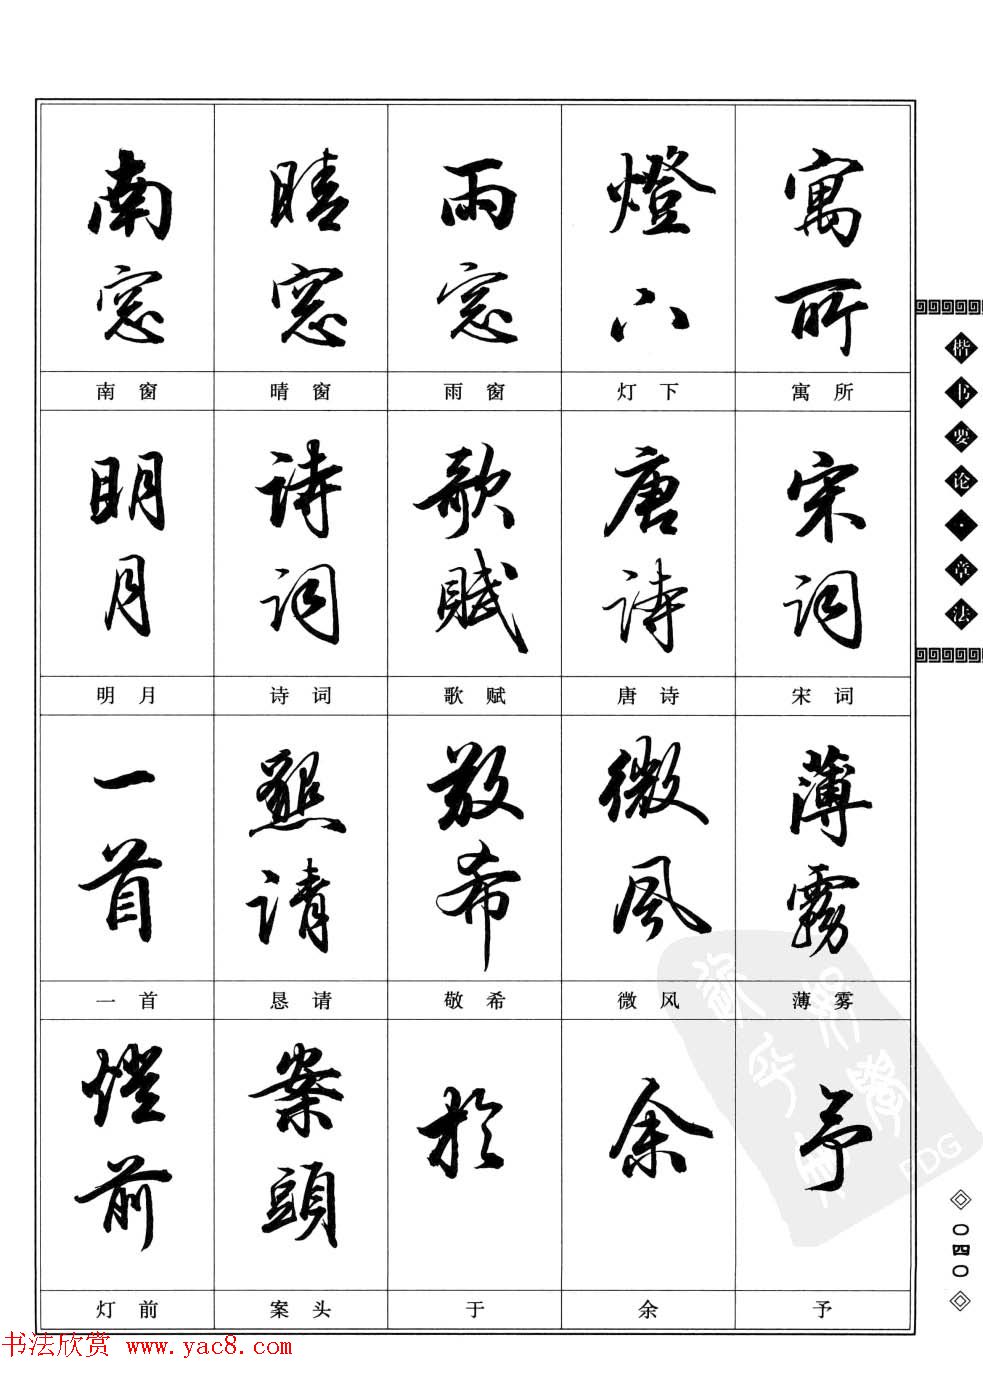 南 晴 雨 燈 寓
窓 窓 窓 下 所
南窗 晴窗 雨窗 灯下 寓所
明 诗 歌 唐 宋
月 词 赋 诗 词
明月 诗词 歌赋 唐诗 宋词
一 懇 敬 微 薄
首 请 希 风 霧
一首 恳请 敬希 微风 薄雾
燈 案 於 余 予
前 頭
灯前 案头 于 余 予
楷书要论·章法
〇四〇
FDG
书法欣赏 www.yac8.com